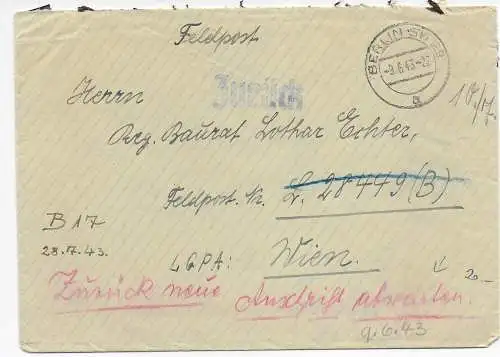 Feldpost
BERLIN SW
-9.6.43.-22
a
Zurück
Herrn
Reg. Baurat Lothar Echter,
Feldpost. Nr. L. 28449 (B)
B 17
28.7.43.
LGPA: Wien.
20-
Zurück neue Anschrift abwarten.
9.6.43